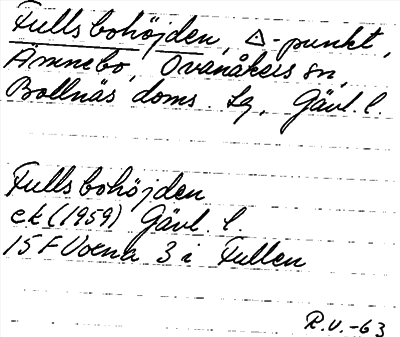 Fullsbohöjden, △-punkt,
Ämnebo, Ovanåkers sn,
Bollnäs doms. lg, Gävl. l.
Fullsbohöjden
ek (1959) Gävl. l.
15F Voxna 3 i Fullen
R.V.-63